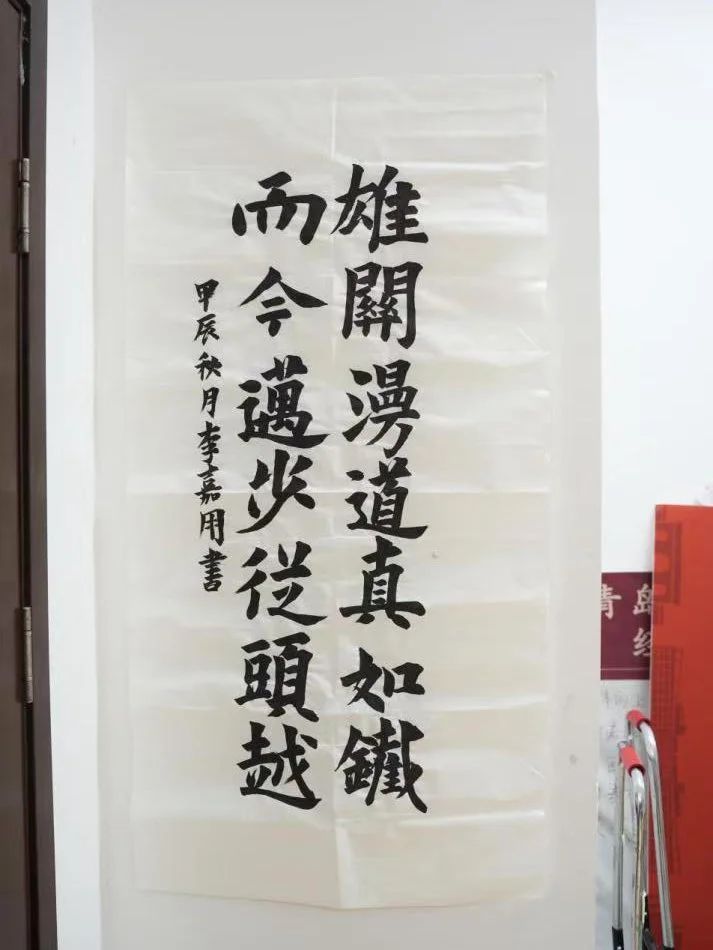 雄關漫道真如鐵
而今邁步從頭越
甲辰秋月李嘉用書
青島
經